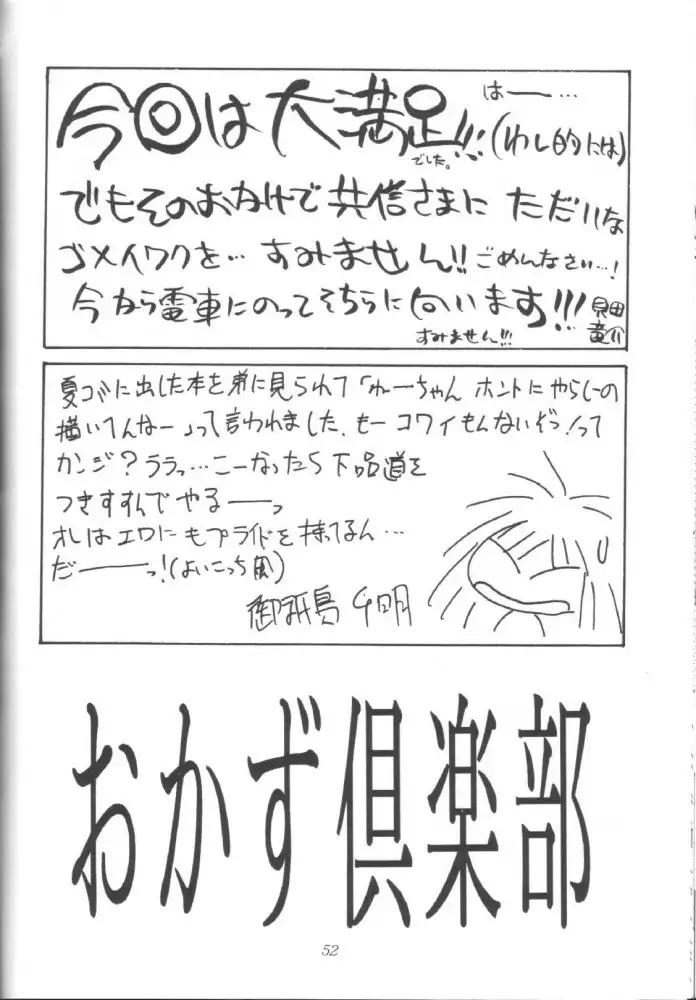 はー…
今回は大満足!!!(わし的には)
でした。
でもそのおかげで共信さまにただいな
ゴメイワクを…すみません!!ごめんなさい…!
今から電車にのってそちらに向います!!!
すみません!!!
貝田
竜介
夏コミに出した本を弟に見られて「わーちゃんホントにやらしーの
描いてんなー」って言われました。もーコワイもんないぞっ!って
カンジ?ララっ…こーなったら下品道を
つきすすんでやるーーっ
オレはエロにもプライドを持ってるん…
だーーーっ!(よいこっち風)
御祈島千明
おかず倶楽部
52